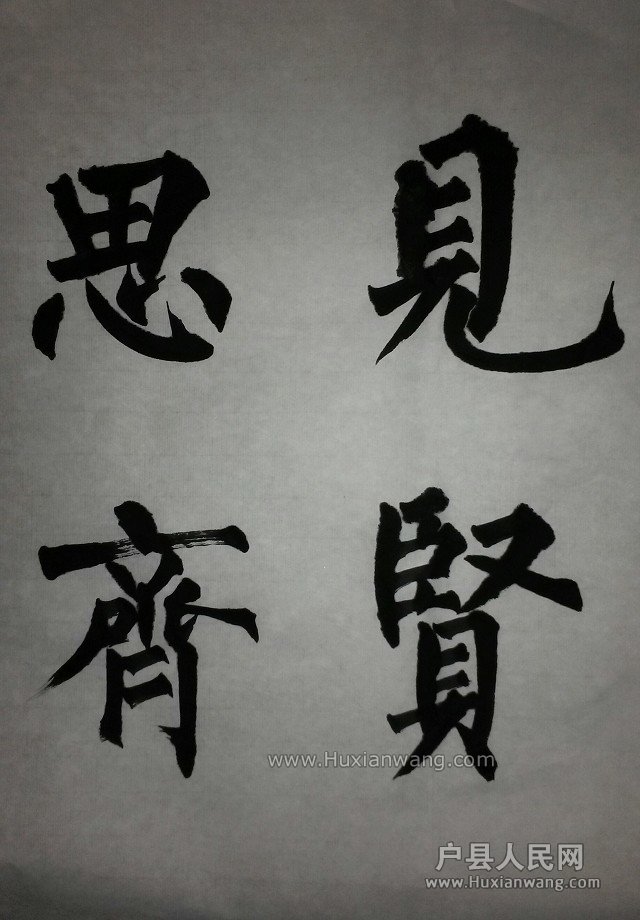 見賢
思齊
www.Huxianwang.com
户县人民网
www.Huxianwang.com